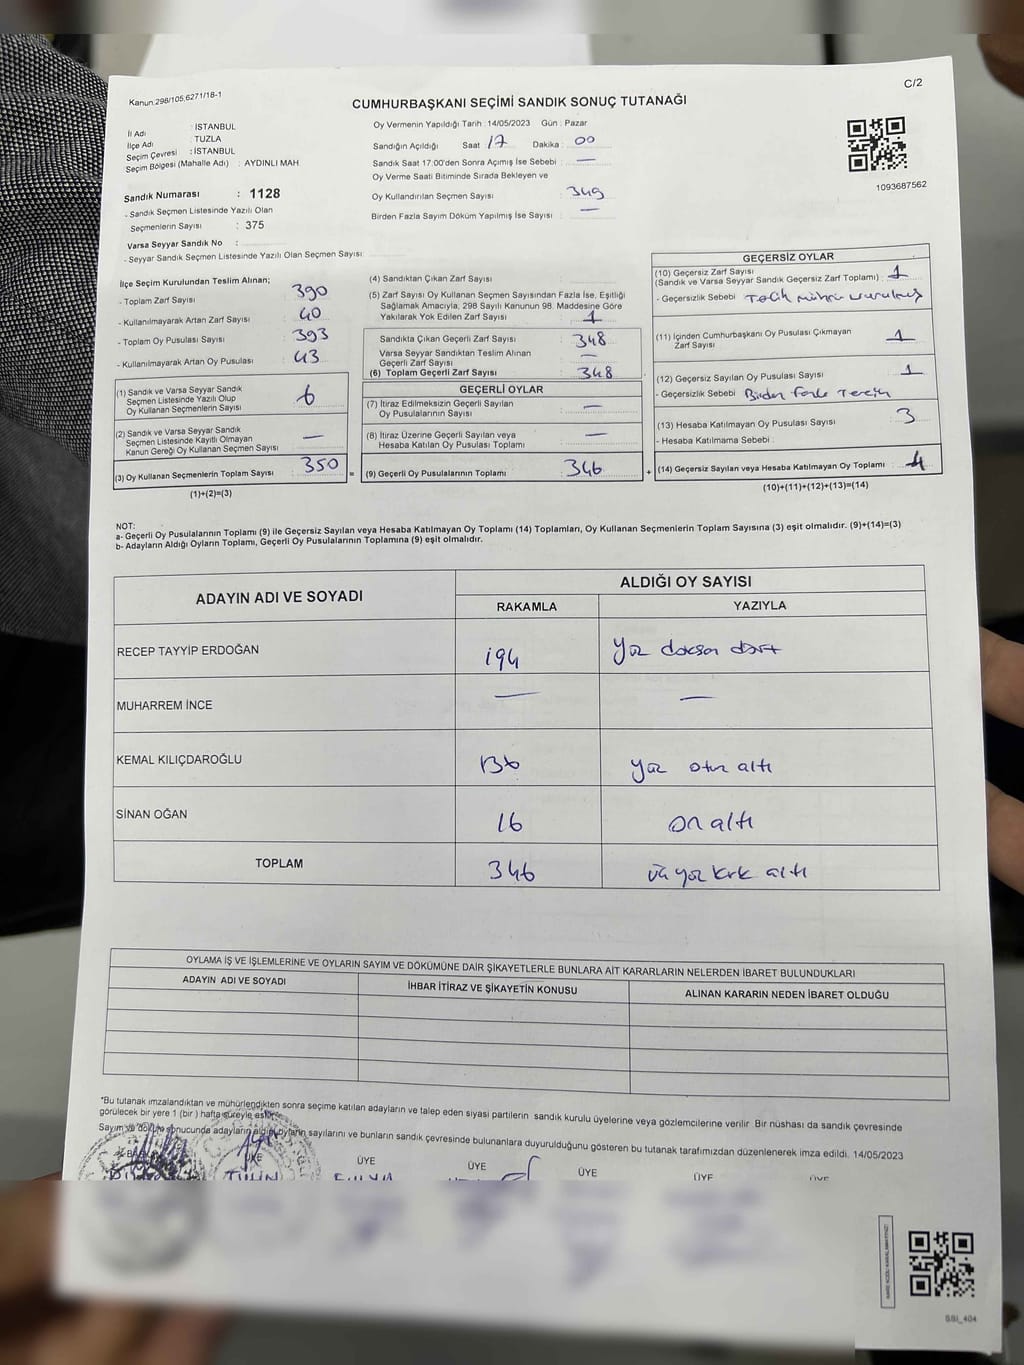 Kanun.298/105,6271/18-1
C/2
CUMHURBAŞKANI SEÇİMİ SANDIK SONUÇ TUTANAĞI
İl Adı : İSTANBUL
İlçe Adı : TUZLA
Seçim Çevresi : İSTANBUL
Seçim Bölgesi (Mahalle Adı) : AYDINLI MAH
Sandık Numarası : 1128
- Sandık Seçmen Listesinde Yazılı Olan
Seçmenlerin Sayısı : 375
Varsa Seyyar Sandık No :
- Seyyar Sandık Seçmen Listesinde Yazılı Olan Seçmen Sayısı
Oy Vermenin Yapıldığı Tarih : 14/05/2023 Gün : Pazar
Sandığın Açıldığı Saat 17 Dakika : 00
Sandık Saat 17:00'den Sonra Açımış İse Sebebi : —
Oy Verme Saati Bitiminde Sırada Bekleyen ve
Oy Kullandırılan Seçmen Sayısı : 349
Birden Fazla Sayım Döküm Yapılmış İse Sayısı : —
1093687562
İlçe Seçim Kurulundan Teslim Alınan;
- Toplam Zarf Sayısı : 390
- Kullanılmayarak Artan Zarf Sayısı : 40
- Toplam Oy Pusulası Sayısı : 393
- Kullanılmayarak Artan Oy Pusulası : 43
(1) Sandık ve Varsa Seyyar Sandık
Seçmen Listesinde Yazılı Olup
Oy Kullanan Seçmenlerin Sayısı : 6
(2) Sandık ve Varsa Seyyar Sandık
Seçmen Listesinde Kayıtlı Olmayan
Kanun Gereği Oy Kullanan Seçmen Sayısı : —
(3) Oy Kullanan Seçmenlerin Toplam Sayısı : 350
(1)+(2)=(3)
(4) Sandıktan Çıkan Zarf Sayısı :
(5) Zarf Sayısı Oy Kullanan Seçmen Sayısından Fazla İse, Eşitliği
Sağlamak Amacıyla, 298 Sayılı Kanunun 98. Maddesine Göre
Yakılarak Yok Edilen Zarf Sayısı : 1
Sandıkta Çıkan Geçerli Zarf Sayısı : 348
Varsa Seyyar Sandıktan Teslim Alınan
Geçerli Zarf Sayısı : —
(6) Toplam Geçerli Zarf Sayısı : 348
GEÇERLİ OYLAR
(7) İtiraz Edilmeksizin Geçerli Sayılan
Oy Pusulalarının Sayısı : —
(8) İtiraz Üzerine Geçerli Sayılan veya
Hesaba Katılan Oy Pusulası Toplamı : —
= (9) Geçerli Oy Pusulalarının Toplamı : 346 +
GEÇERSİZ OYLAR
(10) Geçersiz Zarf Sayısı
(Sandık ve Varsa Seyyar Sandık Geçersiz Zarf Toplamı) : 1
- Geçersizlik Sebebi : Tercih mührü vurulmuş
(11) İçinden Cumhurbaşkanı Oy Pusulası Çıkmayan
Zarf Sayısı : 1
(12) Geçersiz Sayılan Oy Pusulası Sayısı : 1
- Geçersizlik Sebebi : Birden fazla Tercih
(13) Hesaba Katılmayan Oy Pusulası Sayısı : 3
- Hesaba Katılmama Sebebi :
(14) Geçersiz Sayılan veya Hesaba Katılmayan Oy Toplamı : 4
(10)+(11)+(12)+(13)=(14)
NOT:
a- Geçerli Oy Pusulalarının Toplamı (9) ile Geçersiz Sayılan veya Hesaba Katılmayan Oy Toplamı (14) Toplamları, Oy Kullanan Seçmenlerin Toplam Sayısına (3) eşit olmalıdır. (9)+(14)=(3)
b- Adayların Aldığı Oyların Toplamı, Geçerli Oy Pusulalarının Toplamına (9) eşit olmalıdır.
ADAYIN ADI VE SOYADI
ALDIĞI OY SAYISI
RAKAMLA YAZIYLA
RECEP TAYYİP ERDOĞAN 194 Yüz doksan dört
MUHARREM İNCE — —
KEMAL KILIÇDAROĞLU 136 yüz otuz altı
SİNAN OĞAN 16 on altı
TOPLAM 346 üç yüz kırk altı
OYLAMA İŞ VE İŞLEMLERİNE VE OYLARIN SAYIM VE DÖKÜMÜNE DAİR ŞİKAYETLERLE BUNLARA AİT KARARLARIN NELERDEN İBARET BULUNDUKLARI
ADAYIN ADI VE SOYADI İHBAR İTİRAZ VE ŞİKAYETİN KONUSU ALINAN KARARIN NEDEN İBARET OLDUĞU
*Bu tutanak imzalandıktan ve mühürlendikten sonra seçime katılan adayların ve talep eden siyasi partilerin sandık kurulu üyelerine veya gözlemcilerine verilir. Bir nüshası da sandık çevresinde
görülecek bir yere 1 (bir ) hafta süreyle asılır.
Sayım ve döküm sonucunda adayların aldığı oyların sayılarını ve bunların sandık çevresinde bulunanlara duyurulduğunu gösteren bu tutanak tarafımızdan düzenlenerek imza edildi. 14/05/2023
BAŞKAN ÜYE ÜYE ÜYE ÜYE ÜYE ÜYE
TÜLİN
SSI_404